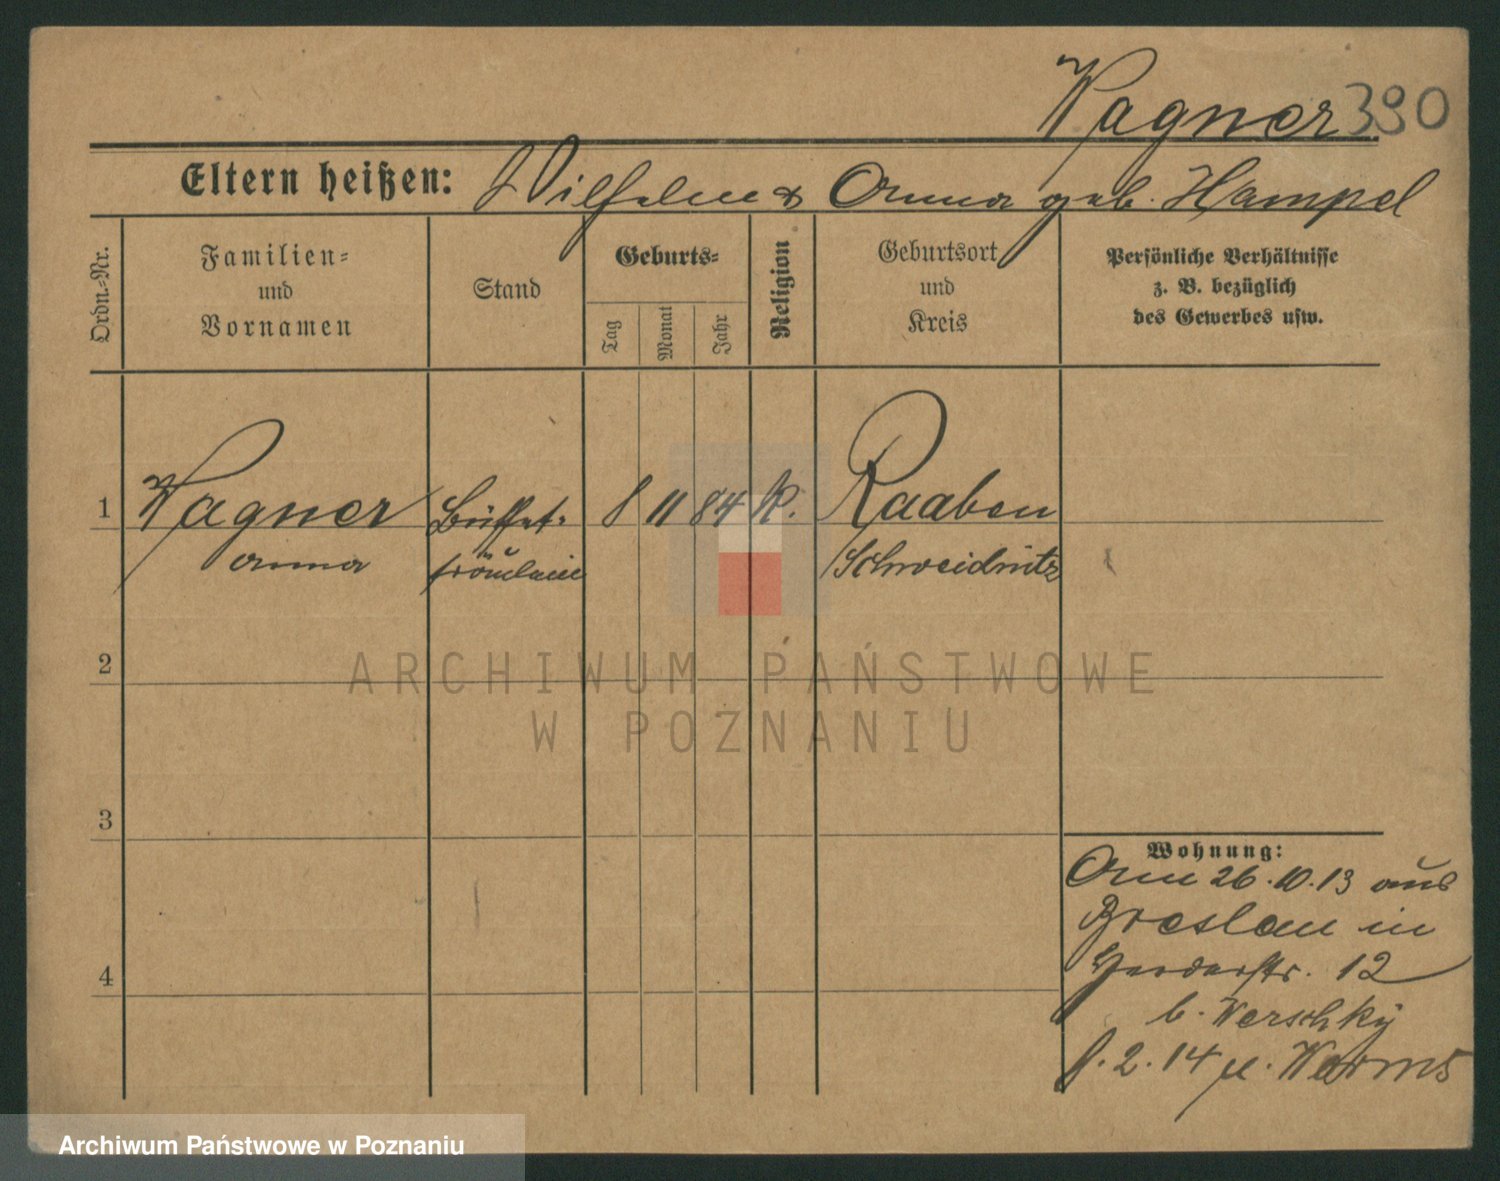 Wagner 390
Eltern heißen: Wilhelm & Anna geb. Hampel
Ordn.-Nr.
Familien-
und
Vornamen
Stand
Geburts-
Tag
Monat
Jahr
Religion
Geburtsort
und
Kreis
Persönliche Verhältnisse
z. B. bezüglich
des Gewerbes usw.
1 Wagner Büffet- 8 11 84 K. Raaben
Anna fräulein Schweidnitz
2
3
4
Wohnung:
Am 26.10.13 aus
Breslau in
12
b. Werschky
8.2.14 n. Worms
ARCHIWUM PAŃSTWOWE
W POZNANIU
Archiwum Państwowe w Poznaniu